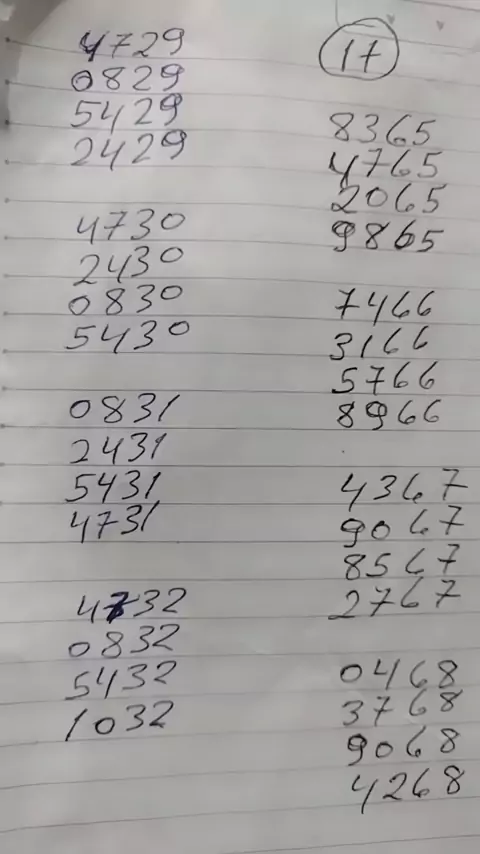 4729
0829
5429
2429
4730
2430
0830
5430
0831
2431
5431
4731
4732
0832
5432
1032
17
8365
4765
2065
9865
7466
3166
5766
8966
4367
9067
8567
2767
0468
3768
9068
4268